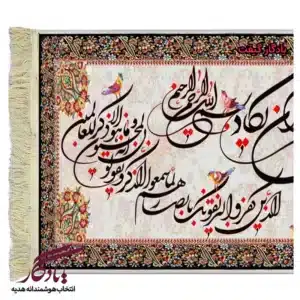 یادگار گیفت
الله الرحمن الرحیم
ان یکاد
الذین کفروا لیزلقونک بابصارهم لما سمعوا الذکر و یقولون
انه لمجنون و ما هو الا ذکر للعالمین
یادگار
انتخاب هوشمندانه هدیه